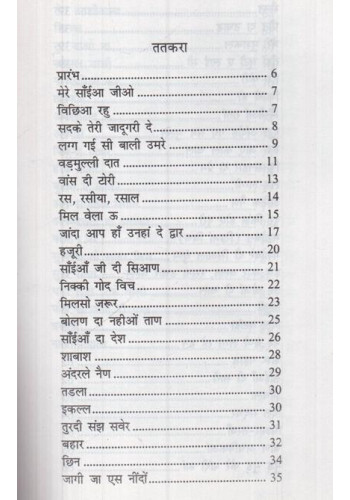 ततकरा
प्रारंभ 6
मेरे साँईआ जीओ 7
विछिआ रहु 7
सदके तेरी जादूगरी दे 8
लग्ग गई सी बाली उमरे 9
वड़मुल्ली दात 11
वांस दी टोरी 13
रस, रसीया, रसाल 14
मिल वेला ऊ 15
जांदा आप हाँ उनहां दे द्वार 17
हजूरी 20
साँईआँ जी दी सिआण 21
निक्की गोद विच 22
मिलसो ज़रूर 23
बोलण दा नहीओं ताण 25
साँईआँ दा देश 26
शाबाश 28
अंदरले नैण 29
तडला 30
इकल्ल 30
तुरदी संझ सवेर 31
बहार 32
छिन 34
जागी जा एस नींदों 35